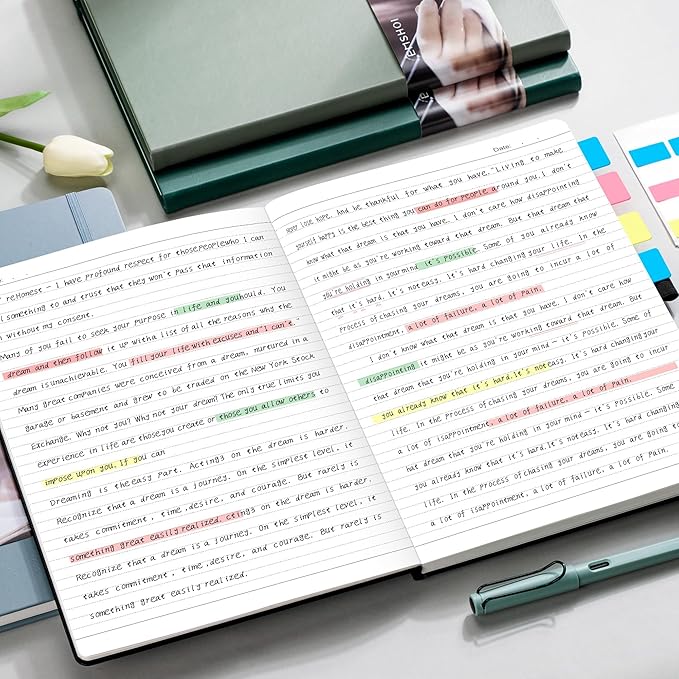 r reHonese - I have profound respect for thosepeoplewho I can
l something to and trust that they won't pass that information
without my consent.
Many of you fail to seek your purpose in life and youhould. You
dream and then follow it up witha list of all the reasons why the
dream isunachievable. You fill your life with excuses and"I can't."
Many great companies were conceived from a dream, nurtured in a
garage or basement and grew to be traded on the New York Stock
Exchange. Why not you? Why not your dream? The only true limits you
experience in life are thoseyou create or those you allow others to
impose upon you. If you can
Dreaming is the easy part. Acting on the dream is harder.
Recognize that a dream is a journey. On the simplest level, it
takes commitment, time,desire, and courage. But rarely is
something great easily realized. cting on the dream is harder.
Recognize that a dream is a journey. On the simplest level, it
takes commitment, time,desire, and courage. But rarely is
something great easily realized.
Date:
never lose hope. And be thankful for what you have. "Living to make
yourself happy is the best thing you can do for people around you.I don't
know what that dream is that you have. I don't care how disappointing
it might be as you're working toward that dream. But that dream that
you're holding in yourmind it's possible. Some of you already know
that it's hard. It's noteasy. It's hard changing your life. In the
process of chasing your dreams, you are going to incur a lot of
disappointment, a lot of failure, a lot of pain.
I don't know what that dream is that you have. I don't care how
disappointing it might be as you're working toward that dream. But
that dream that you're holding in your mind - it's possible. Some of
you already know that it's hard.It's noteasy. It's hard changing your
life. In the process of chasing your dreams, you are going to incur
a lot of isappointment, a lot of failure, a lot of pain.
hat dream that you're holding in your mind - it's possible. Some
you already know that it's hard.It's noteasy. It's hard changing
life. In the process of chasing your dreams, you are going to
a lot of isappointment, a lot of failure, a lot of pain.